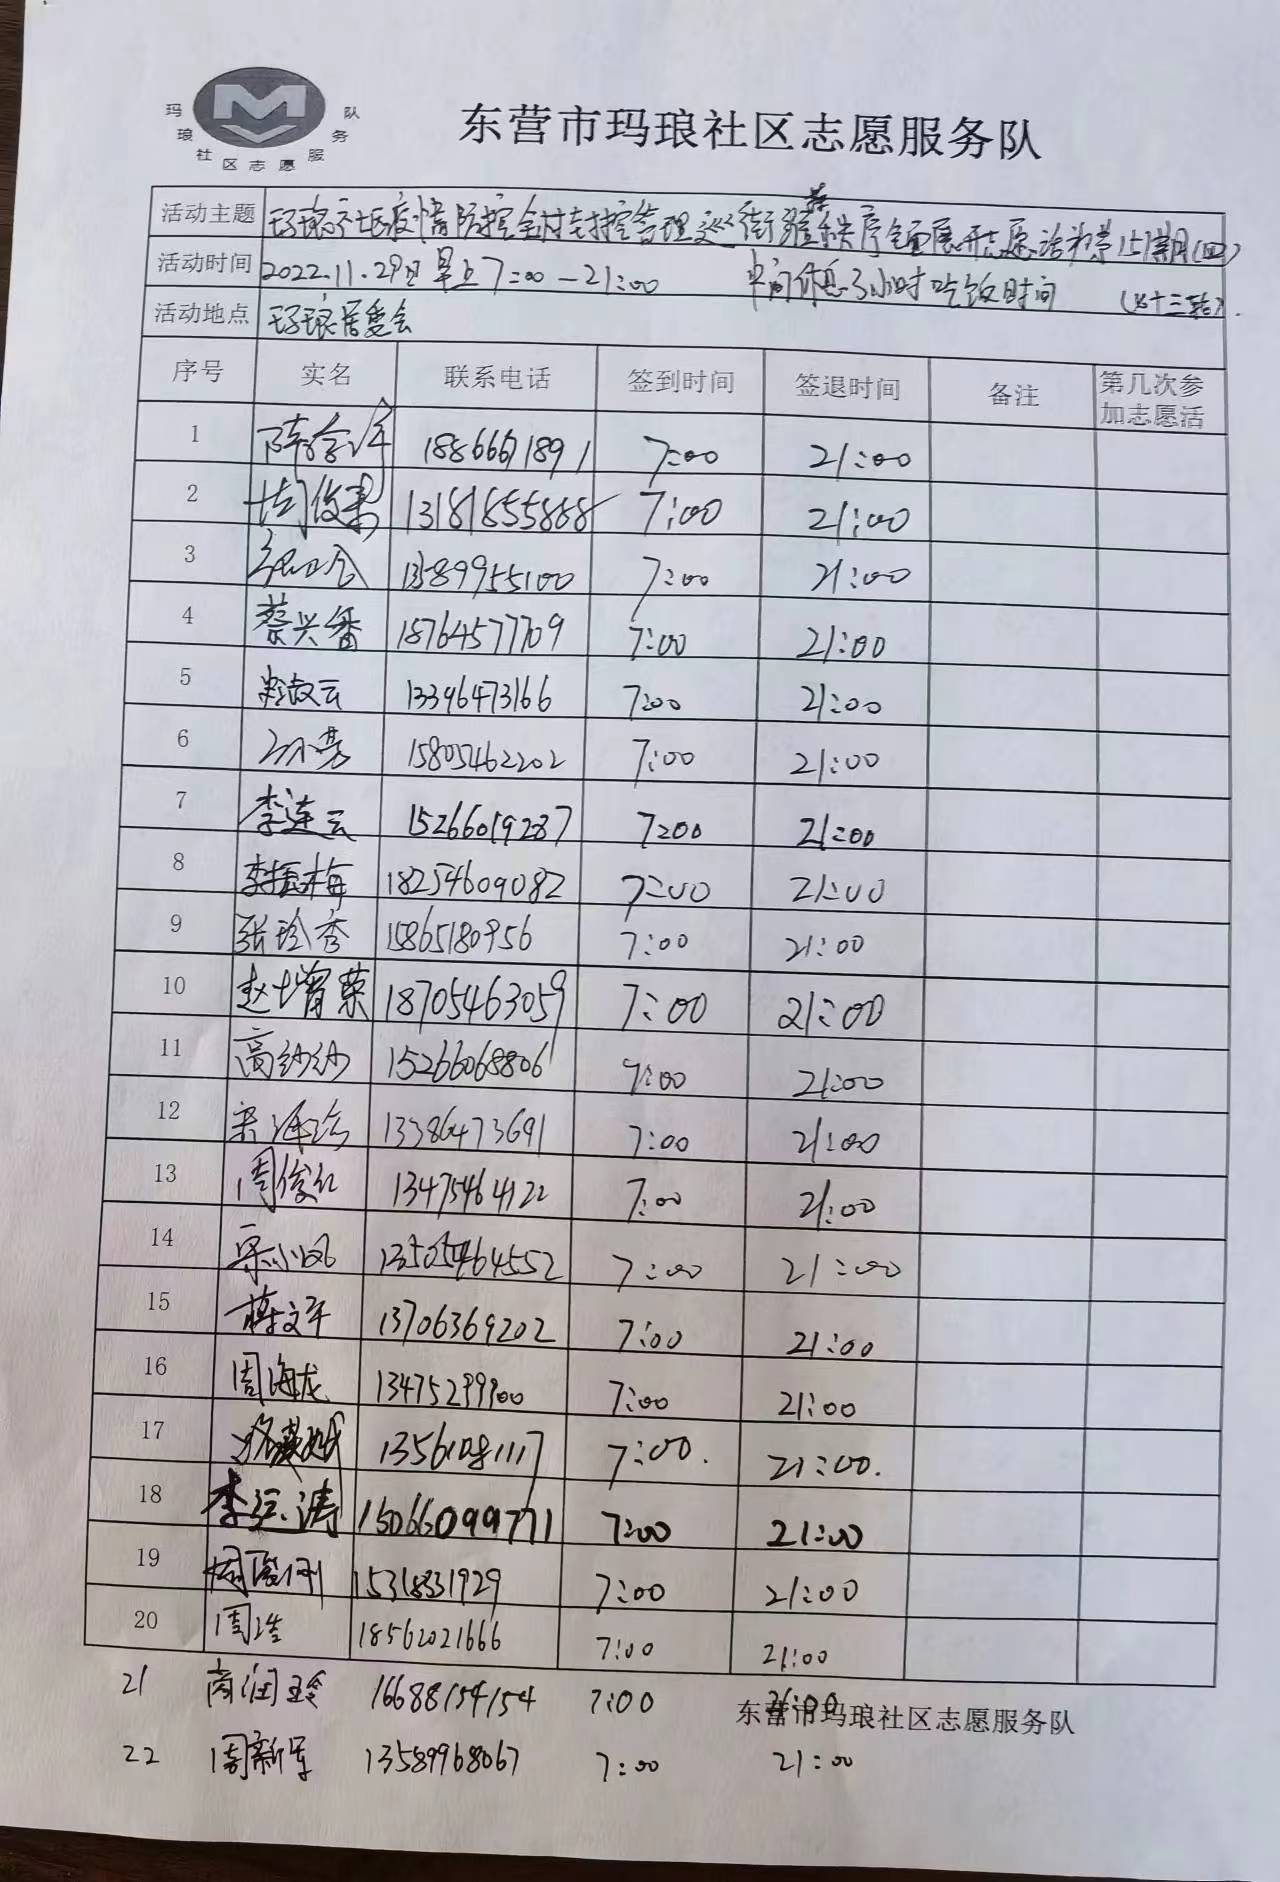 玛琅社区志愿服务队
东营市玛琅社区志愿服务队
活动主题 玛琅社区疫情防控全村封控管理巡街 秩序全面展开志愿活动第151期(四)
活动时间 2022.11.29日早上7:00—21:00 中间休息3小时吃饭时间
活动地点 玛琅居委会
序号 实名 联系电话 签到时间 签退时间 备注 第几次参加志愿活
1 18866671891 7:00 21:00
2 周俊果 13181855888 7:00 21:00
3 13589955100 7:00 21:00
4 蔡兴番 18764577709 7:00 21:00
5 13396473166 7:00 21:00
6 15805462202 7:00 21:00
7 李连云 15266019287 7:00 21:00
8 李振梅 18254609082 7:00 21:00
9 张玲秀 15865180956 7:00 21:00
10 赵增荣 18705463059 7:00 21:00
11 高纱纱 15266068806 7:00 21:00
12 13386473691 7:00 21:00
13 周俊红 13475464122 7:00 21:00
14 7:00 21:00
15 蒋文平 13706369202 7:00 21:00
16 周海龙 13475299900 7:00 21:00
17 13561081117 7:00. 21:00.
18 15066099771 7:00 21:00
19 15318331929 7:00 21:00
20 周浩 18562021666 7:00 21:00
21 商润玲 16688154154 7:00 21:00
东营市玛琅社区志愿服务队
22 周新军 13589968067 7:00 21:00